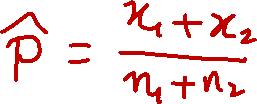 p̂ = (x₁ + x₂) / (n₁ + n₂)